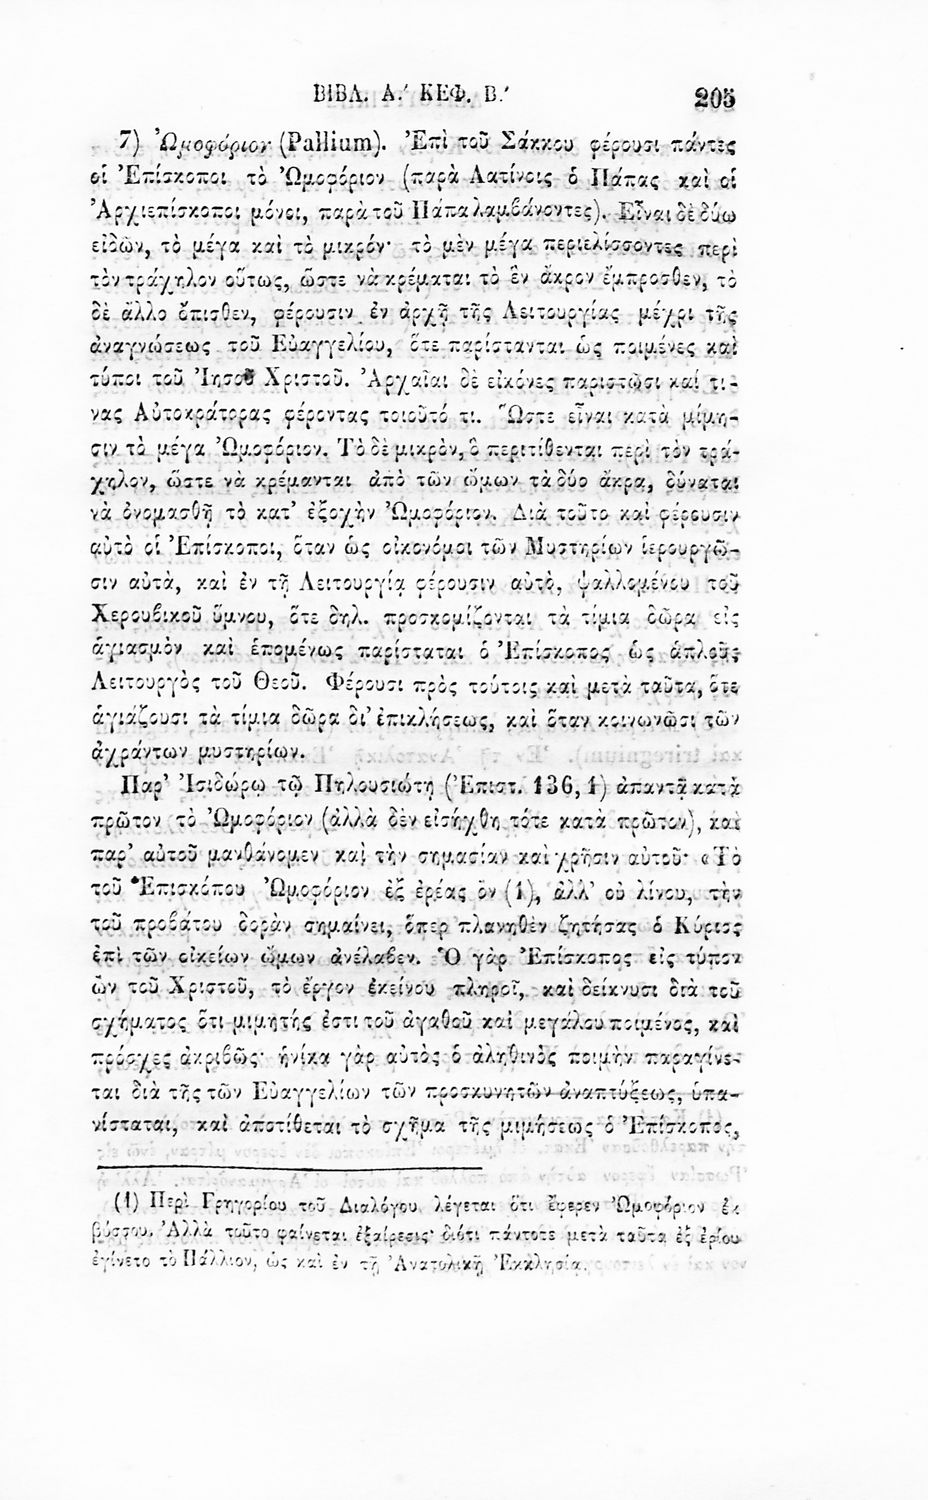 ΒΙΒΛ. Α.′ ΚΕΦ. Β.′ 205
7) Ὠμοφόριον (Pallium). Ἐπὶ τοῦ Σάκκου φέρουσι πάντες
οἱ Ἐπίσκοποι τὸ Ὠμοφόριον (παρὰ Λατίνοις ὁ Πάπας καὶ οἱ
Ἀρχιεπίσκοποι μόνοι, παρὰ τοῦ Πάπα λαμβάνοντες). Εἶναι δὲ δύω
εἰδῶν, τὸ μέγα καὶ τὸ μικρόν· τὸ μὲν μέγα περιελίσσοντες περὶ
τὸν τράχηλον οὕτως, ὥστε νὰ κρέμαται τὸ ἓν ἄκρον ἔμπροσθεν, τὸ
δὲ ἄλλο ὄπισθεν, φέρουσιν ἐν ἀρχῇ τῆς Λειτουργίας μέχρι τῆς
ἀναγνώσεως τοῦ Εὐαγγελίου, ὅτε παρίστανται ὡς ποιμένες καὶ
τύποι τοῦ Ἰησοῦ Χριστοῦ. Ἀρχαῖαι δὲ εἰκόνες παριστῶσι καί τι-
νας Αὐτοκράτορας φέροντας τοιοῦτό τι. Ὥστε εἶναι κατὰ μίμη-
σιν τὸ μέγα Ὠμοφόριον. Τὸ δὲ μικρὸν, ὃ περιτίθενται περὶ τὸν τρά-
χηλον, ὥστε νὰ κρέμανται ἀπὸ τῶν ὤμων τὰ δύο ἄκρα, δύναται
νὰ ὀνομασθῇ τὸ κατ’ ἐξοχὴν Ὠμοφόριον. Διὰ τοῦτο καὶ φέρουσιν
αὐτὸ οἱ Ἐπίσκοποι, ὅταν ὡς οἰκονόμοι τῶν Μυστηρίων ἱερουργῶ-
σιν αὐτὰ, καὶ ἐν τῇ Λειτουργίᾳ φέρουσιν αὐτὸ, ψαλλομένου τοῦ
Χερουβικοῦ ὕμνου, ὅτε δηλ. προσκομίζονται τὰ τίμια δῶρα εἰς
ἁγιασμὸν καὶ ἑπομένως παρίσταται ὁ Ἐπίσκοπος ὡς ἁπλοῦς
Λειτουργὸς τοῦ Θεοῦ. Φέρουσι πρὸς τούτοις καὶ μετὰ ταῦτα, ὅτε
ἁγιάζουσι τὰ τίμια δῶρα δι’ ἐπικλήσεως, καὶ ὅταν κοινωνῶσι τῶν
ἀχράντων μυστηρίων.
Παρ’ Ἰσιδώρῳ τῷ Πηλουσιώτῃ (Ἐπιστ. 136, 1) ἀπαντᾷ κατὰ
πρῶτον τὸ Ὠμοφόριον (ἀλλὰ δὲν εἰσήχθη τότε κατὰ πρῶτον), καὶ
παρ’ αὐτοῦ μανθάνομεν καὶ τὴν σημασίαν καὶ χρῆσιν αὐτοῦ· «Τὸ
τοῦ Ἐπισκόπου Ὠμοφόριον ἐξ ἐρέας ὂν (1), ἀλλ’ οὐ λίνου, τὴν
τοῦ προβάτου δορὰν σημαίνει, ὅπερ πλανηθὲν ζητήσας ὁ Κύριος
ἐπὶ τῶν οἰκείων ὤμων ἀνέλαβεν. Ὁ γὰρ Ἐπίσκοπος εἰς τύπον
ὢν τοῦ Χριστοῦ, τὸ ἔργον ἐκείνου πληροῖ, καὶ δείκνυσι διὰ τοῦ
σχήματος ὅτι μιμητής ἐστι τοῦ ἀγαθοῦ καὶ μεγάλου ποιμένος, καὶ
πρόσχες ἀκριβῶς· ἡνίκα γὰρ αὐτὸς ὁ ἀληθινὸς ποιμὴν παραγίνε-
ται διὰ τῆς τῶν Εὐαγγελίων τῶν προσκυνητῶν ἀναπτύξεως, ὑπα-
νίσταται, καὶ ἀποτίθεται τὸ σχῆμα τῆς μιμήσεως ὁ Ἐπίσκοπος,
(1) Περὶ Γρηγορίου τοῦ Διαλόγου λέγεται ὅτι ἔφερεν Ὠμοφόριον ἐκ
βύσσου. Ἀλλὰ τοῦτο φαίνεται ἐξαίρεσις· διότι πάντοτε μετὰ ταῦτα ἐξ ἐρίου
ἐγίνετο τὸ Πάλλιον, ὡς καὶ ἐν τῇ Ἀνατολικῇ Ἐκκλησίᾳ.